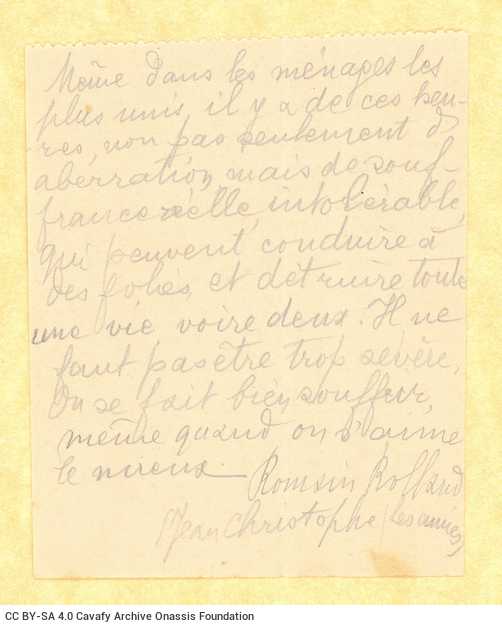 Même dans les ménages les
plus unis, il y a de ces heu-
res, non pas seulement d'
aberration, mais de souf-
france réelle, intolérable,
qui peuvent conduire à
des folies, et détruire toute
une vie voire deux. Il ne
faut pas être trop sévère.
On se fait bien souffrir,
même quand on s'aime
le mieux — Romain Rolland
(Jean Christophe / les amies)
CC BY-SA 4.0 Cavafy Archive Onassis Foundation